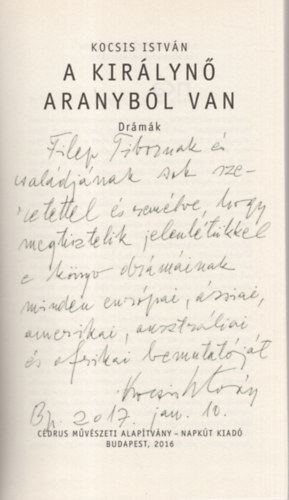 KOCSIS ISTVÁN
A KIRÁLYNŐ
ARANYBÓL VAN
Drámák
Filep Tibornak és
családjának sok sze-
retettel és remélve, hogy
megtisztelik jelenlétükkel
e könyv drámáinak
minden európai, ázsiai,
amerikai, ausztráliai
és afrikai bemutatóját
Kocsis István
Bp. 2017. jan. 10.
CÉDRUS MŰVÉSZETI ALAPÍTVÁNY – NAPKÚT KIADÓ
BUDAPEST, 2016